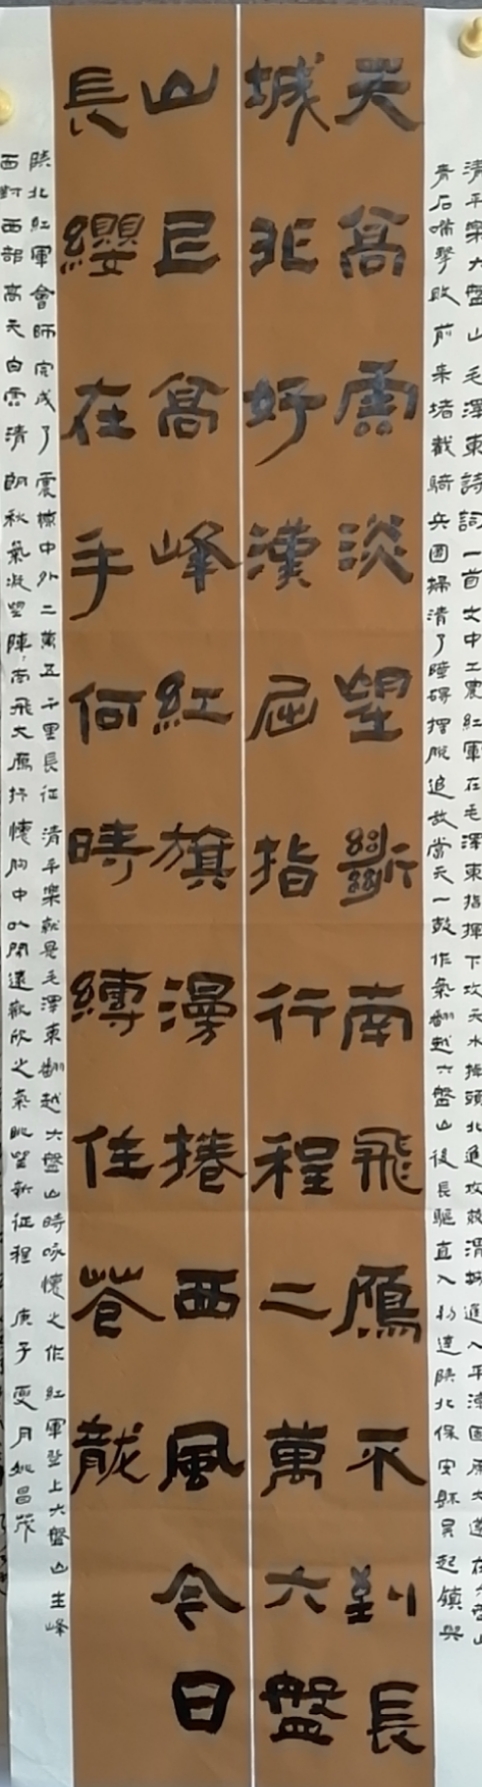 清平樂六盤山毛澤東詩詞一首文中工農紅軍在毛澤東指揮下攻天水掉頭北進攻戰渭城進入平涼固原大道在六盤山
青石嘴擊敗前來堵截騎兵團掃清了障碍擺脫追敌當天一鼓作氣翻越六盤山後長驅直入到達陝北保安縣吴起鎮與
天高雲淡望斷南飛雁不到長
城非好漢屈指行程二萬六盤
山上高峰紅旗漫捲西風今日
長纓在手何時縛住蒼龍
陝北紅軍會師完成了震撼中外二萬五千里長征清平樂就是毛澤東翻越六盤山時咏懷之作紅軍登上六盤山主峰
面對西部高天白雲清朗秋氣凝望陣南飛大雁抒懷胸中開遠歡欣之氣眺望新征程庚子夏月姚昌茂